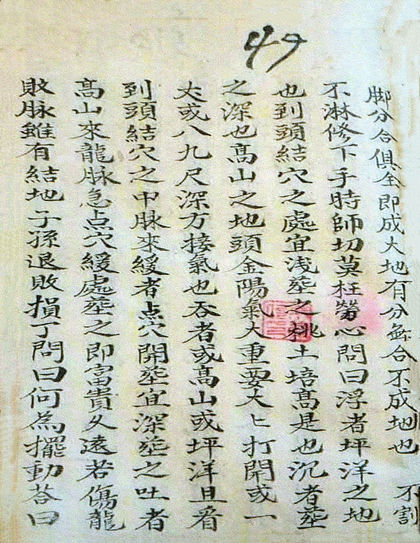 49
脚分合俱全即成大地有分無合不成地也 不割
不淋修下手時師切莫枉勞心問曰浮者坪洋之地
也到頭結穴之處宜浅塟之挑土培髙是也沉者塟
之深也髙山之地頭金陽氣大重要大匕打開或一
丈或八九尺深方接氣也吞者或髙山或坪洋且看
到頭結穴之中脉來緩者点穴開塟宜深塟之吐者
髙山來龍脉急点穴緩處塟之即富貴久遠若傷龍
敗脉雖有結地子孫退敗損丁問曰何為擺動荅曰